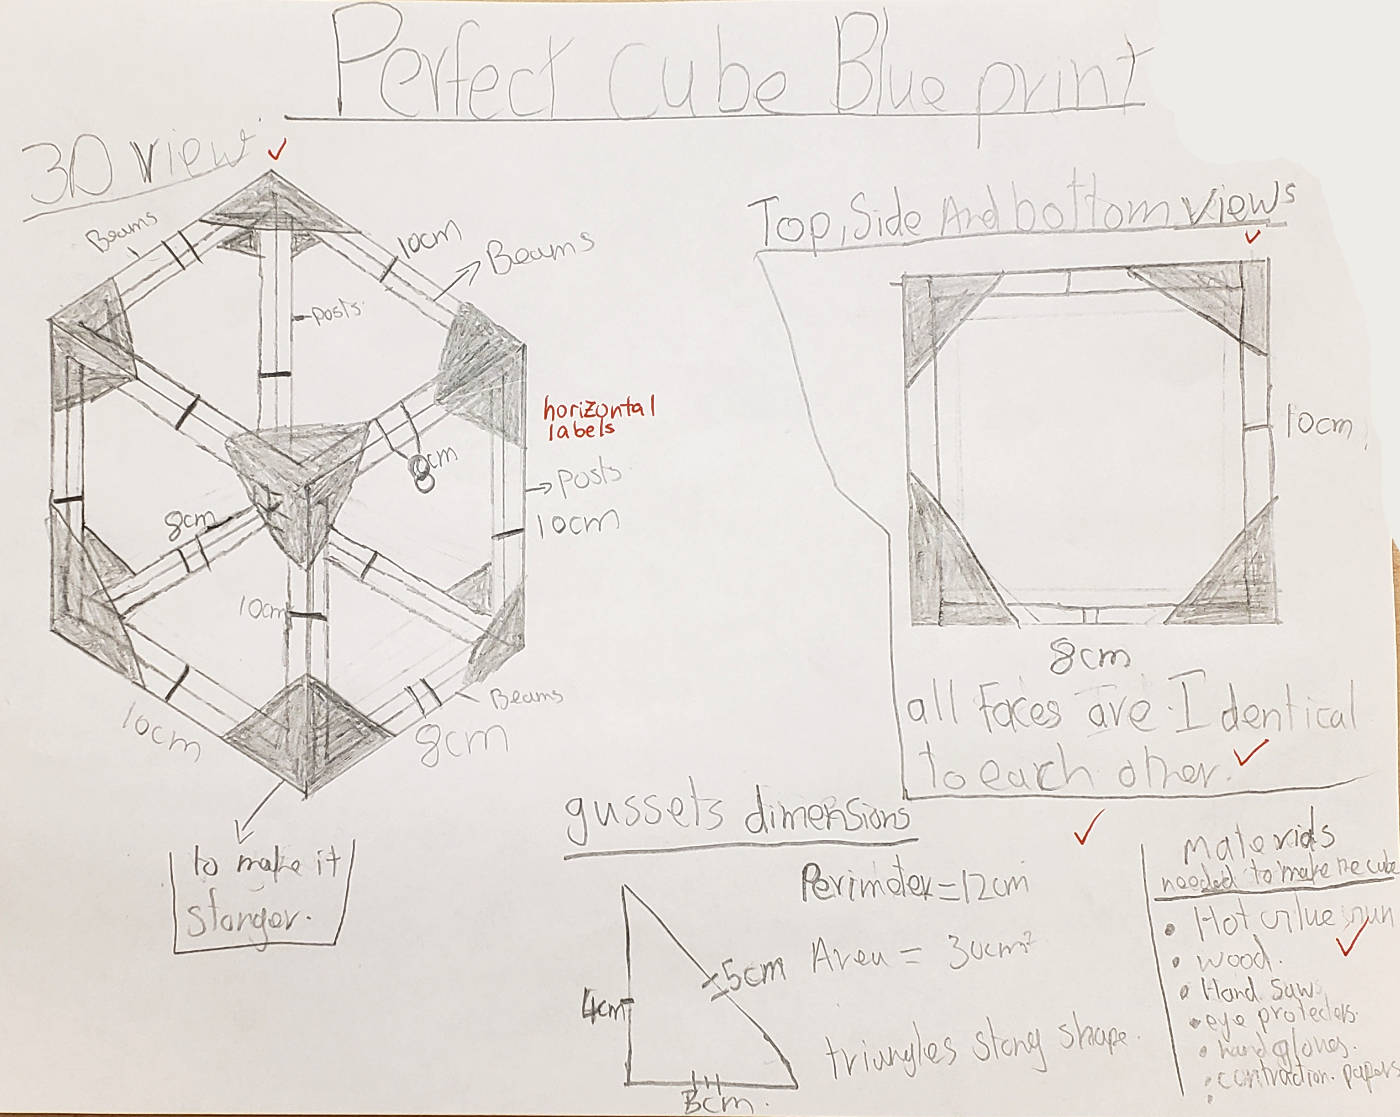 Perfect Cube Blue print
3D view
Beams
10cm
Beams
posts
horizontal
labels
8cm
Posts
10cm
8cm
10cm
Beams
10cm
8cm
to make it
stonger.
Top, Side And bottom views
10cm
8cm
all Faces are Identical
to each other.
gussets dimensions
Perimeter=12cm
Area = 30cm²
5cm
4cm
3cm.
triangles stong shape.
Materials
needed to make the cube
• Hot Glue gun
• wood.
• Hand saws
• eye protecters.
• hand gloves.
• contraction papers